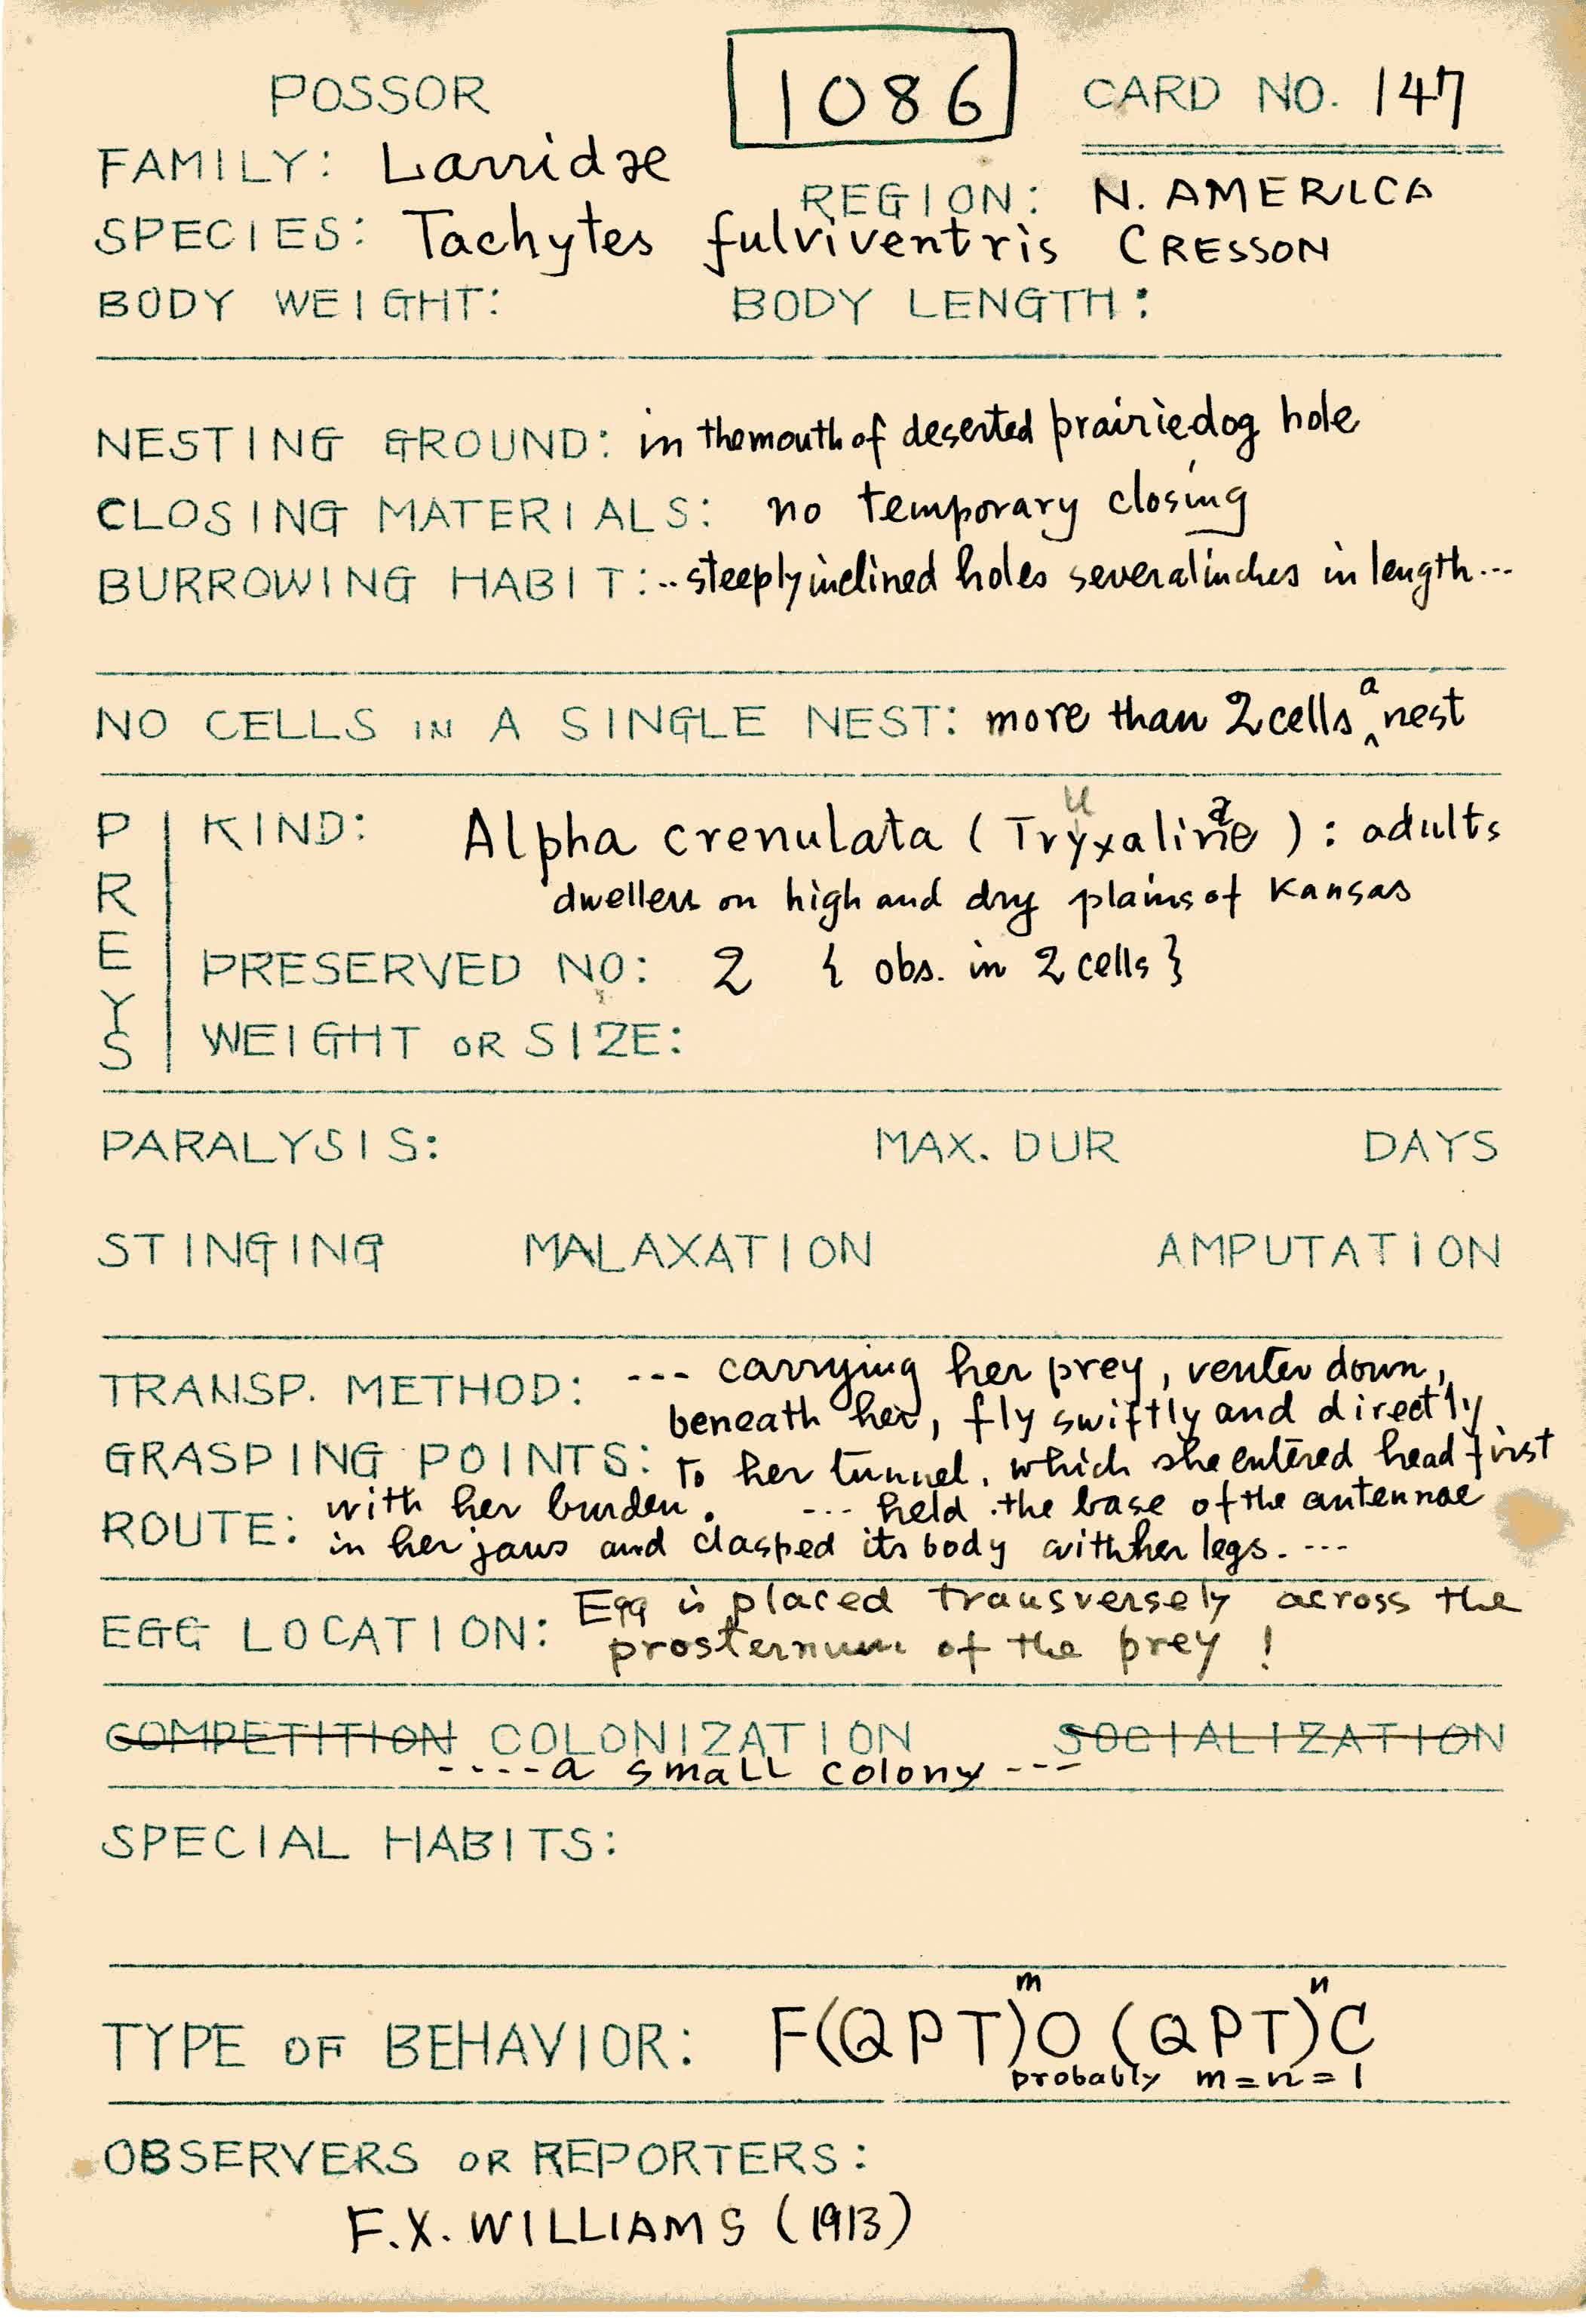 POSSOR
1086
CARD NO. 147
FAMILY: Larridae
REGION: N. AMERICA
SPECIES: Tachytes fulviventris CRESSON
BODY WEIGHT: BODY LENGTH:
NESTING GROUND: in the mouth of deserted prairiedog hole
CLOSING MATERIALS: no temporary closing
BURROWING HABIT: ..steeply inclined holes several inches in length...
NO CELLS IN A SINGLE NEST: more than 2 cells a nest
PREYS
KIND: Alpha crenulata (Tryxalinae): adults
dwellers on high and dry plains of Kansas
PRESERVED NO: 2 { obs. in 2 cells }
WEIGHT OR SIZE:
PARALYSIS: MAX. DUR DAYS
STINGING MALAXATION AMPUTATION
TRANSP. METHOD: --- carrying her prey, venter down,
beneath her, fly swiftly and directly
GRASPING POINTS: to her tunnel, which she entered head first
with her burden. --- held the base of the antennae
ROUTE: in her jaws and clasped its body with her legs. ---
EGG LOCATION: Egg is placed transversely across the
prosternum of the prey !
COMPETITION COLONIZATION SOCIALIZATION
----a small colony ---
SPECIAL HABITS:
TYPE OF BEHAVIOR: F(QPT)^m O (QPT)^n C
probably m=n=1
OBSERVERS OR REPORTERS:
F.X. WILLIAMS (1913)